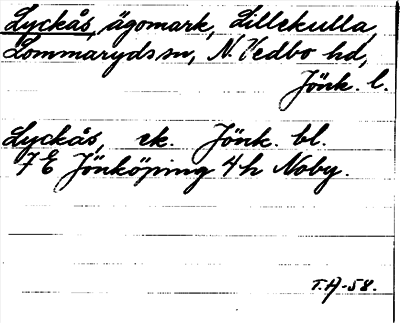 Lyckås, ägomark, Lillekulla,
Lommaryds sn, N. Vedbo hd,
Jönk. l.
Lyckås, ek. Jönk. bl.
7 E Jönköping 4 h Noby.
T.A-58.